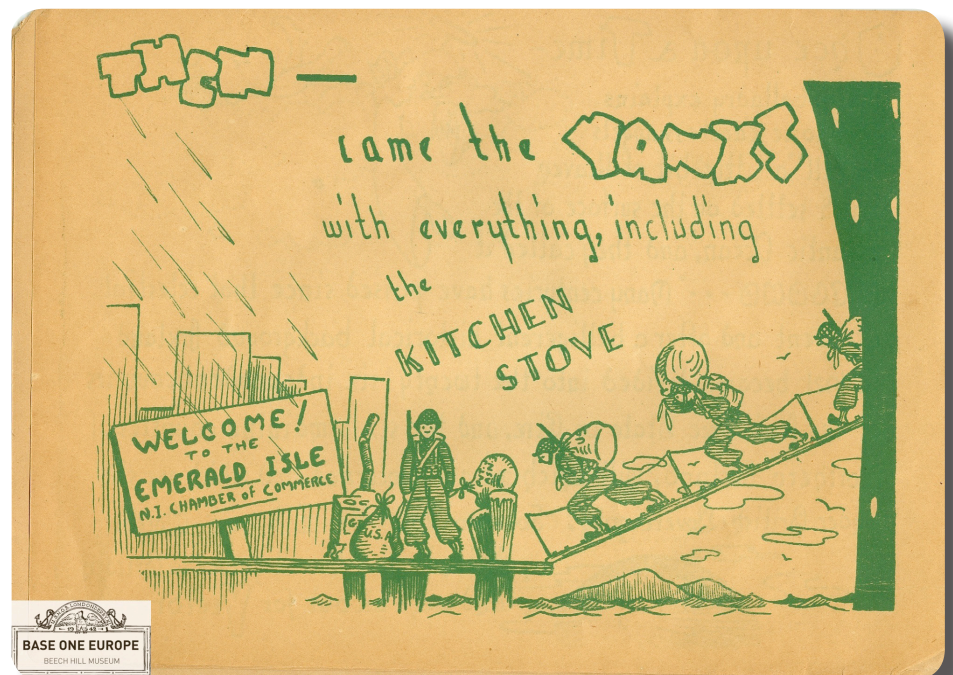 THEN —
came the YANKS
with everything, including
the
KITCHEN
STOVE
WELCOME!
TO THE
EMERALD ISLE
N.I. CHAMBER OF COMMERCE
U.S.A.
BASE ONE EUROPE
BEECH HILL MUSEUM